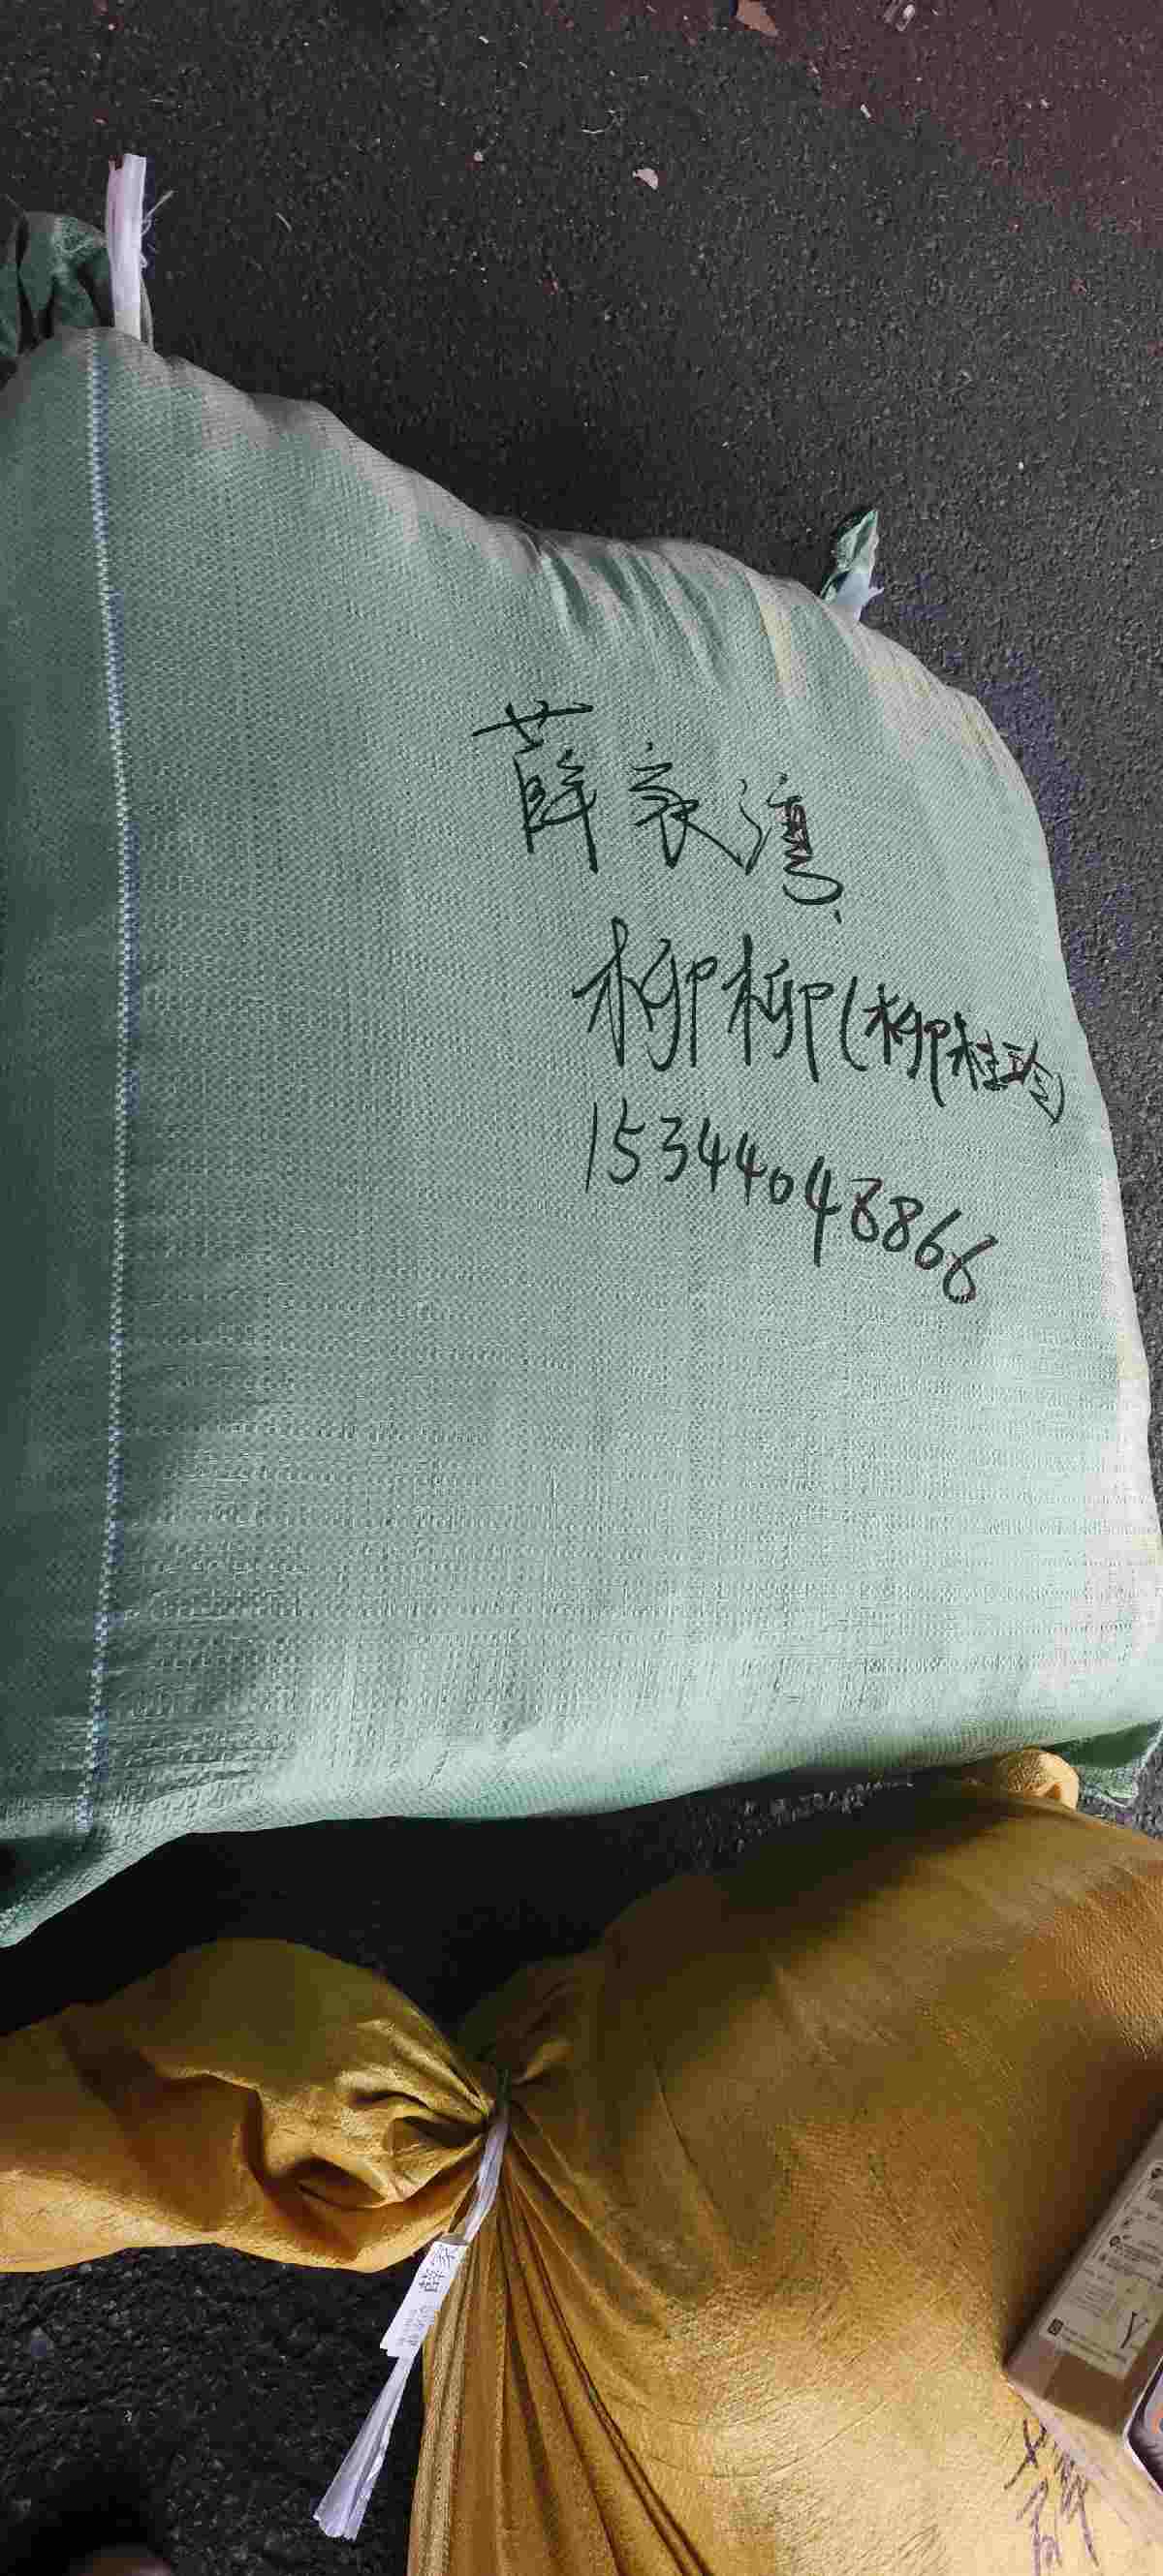 薛家湾
柳柳(柳桂均)
15344048866
Y
薛